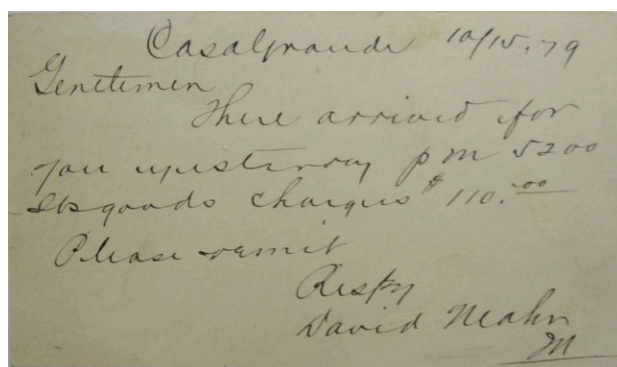 Casagrande 10/15.79
Gentlemen
There arrived for
you yesterday pm 5200
lbs goods charges $110.00
Please remit
Respy
David Neahr
M